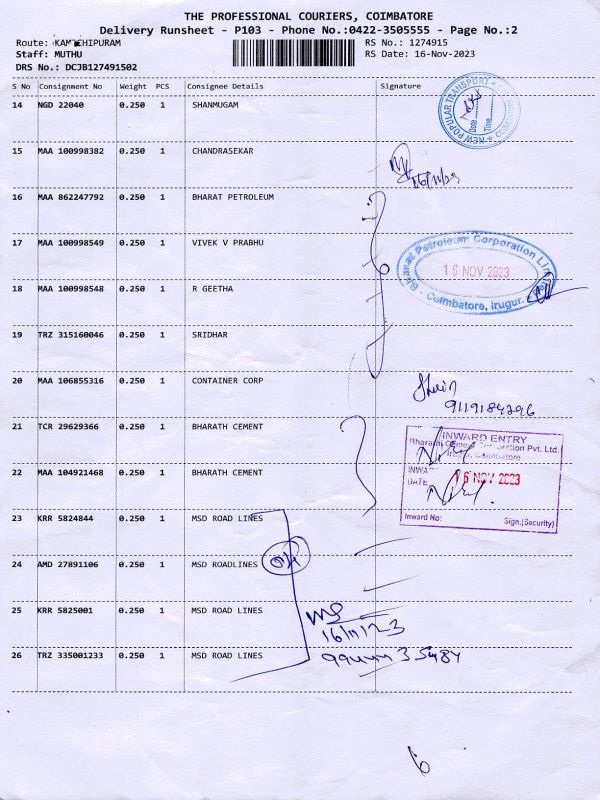 THE PROFESSIONAL COURIERS, COIMBATORE
Delivery Runsheet - P103 - Phone No.:0422-3505555 - Page No.:2
Route: KANCHIPURAM RS No.: 1274915
Staff: MUTHU RS Date: 16-Nov-2023
DRS No.: DCJB127491502
S No Consignment No Weight PCS Consignee Details Signature
14 NGD 22040 0.250 1 SHANMUGAM
NEW POPULAR TRANSPORT
Date
Time
15 MAA 100998382 0.250 1 CHANDRASEKAR
16/11/23
16 MAA 862247792 0.250 1 BHARAT PETROLEUM
17 MAA 100998549 0.250 1 VIVEK V PRABHU
Bharat Petroleum Corporation Limited
16 NOV 2023
Coimbatore, Irugur.
18 MAA 100998548 0.250 1 R GEETHA
19 TRZ 315160046 0.250 1 SRIDHAR
20 MAA 106855316 0.250 1 CONTAINER CORP
9119184296
21 TCR 29629366 0.250 1 BHARATH CEMENT
INWARD ENTRY
Bharathi Cement Corporation Pvt. Ltd.
Irugur, Coimbatore
22 MAA 104921468 0.250 1 BHARATH CEMENT
INWARD
DATE 16 NOV 2023
Inward No: Sign.(Security)
23 KRR 5824844 0.250 1 MSD ROAD LINES
24 AMD 27891106 0.250 1 MSD ROADLINES
25 KRR 5825001 0.250 1 MSD ROAD LINES
16/11/23
26 TRZ 335001233 0.250 1 MSD ROAD LINES